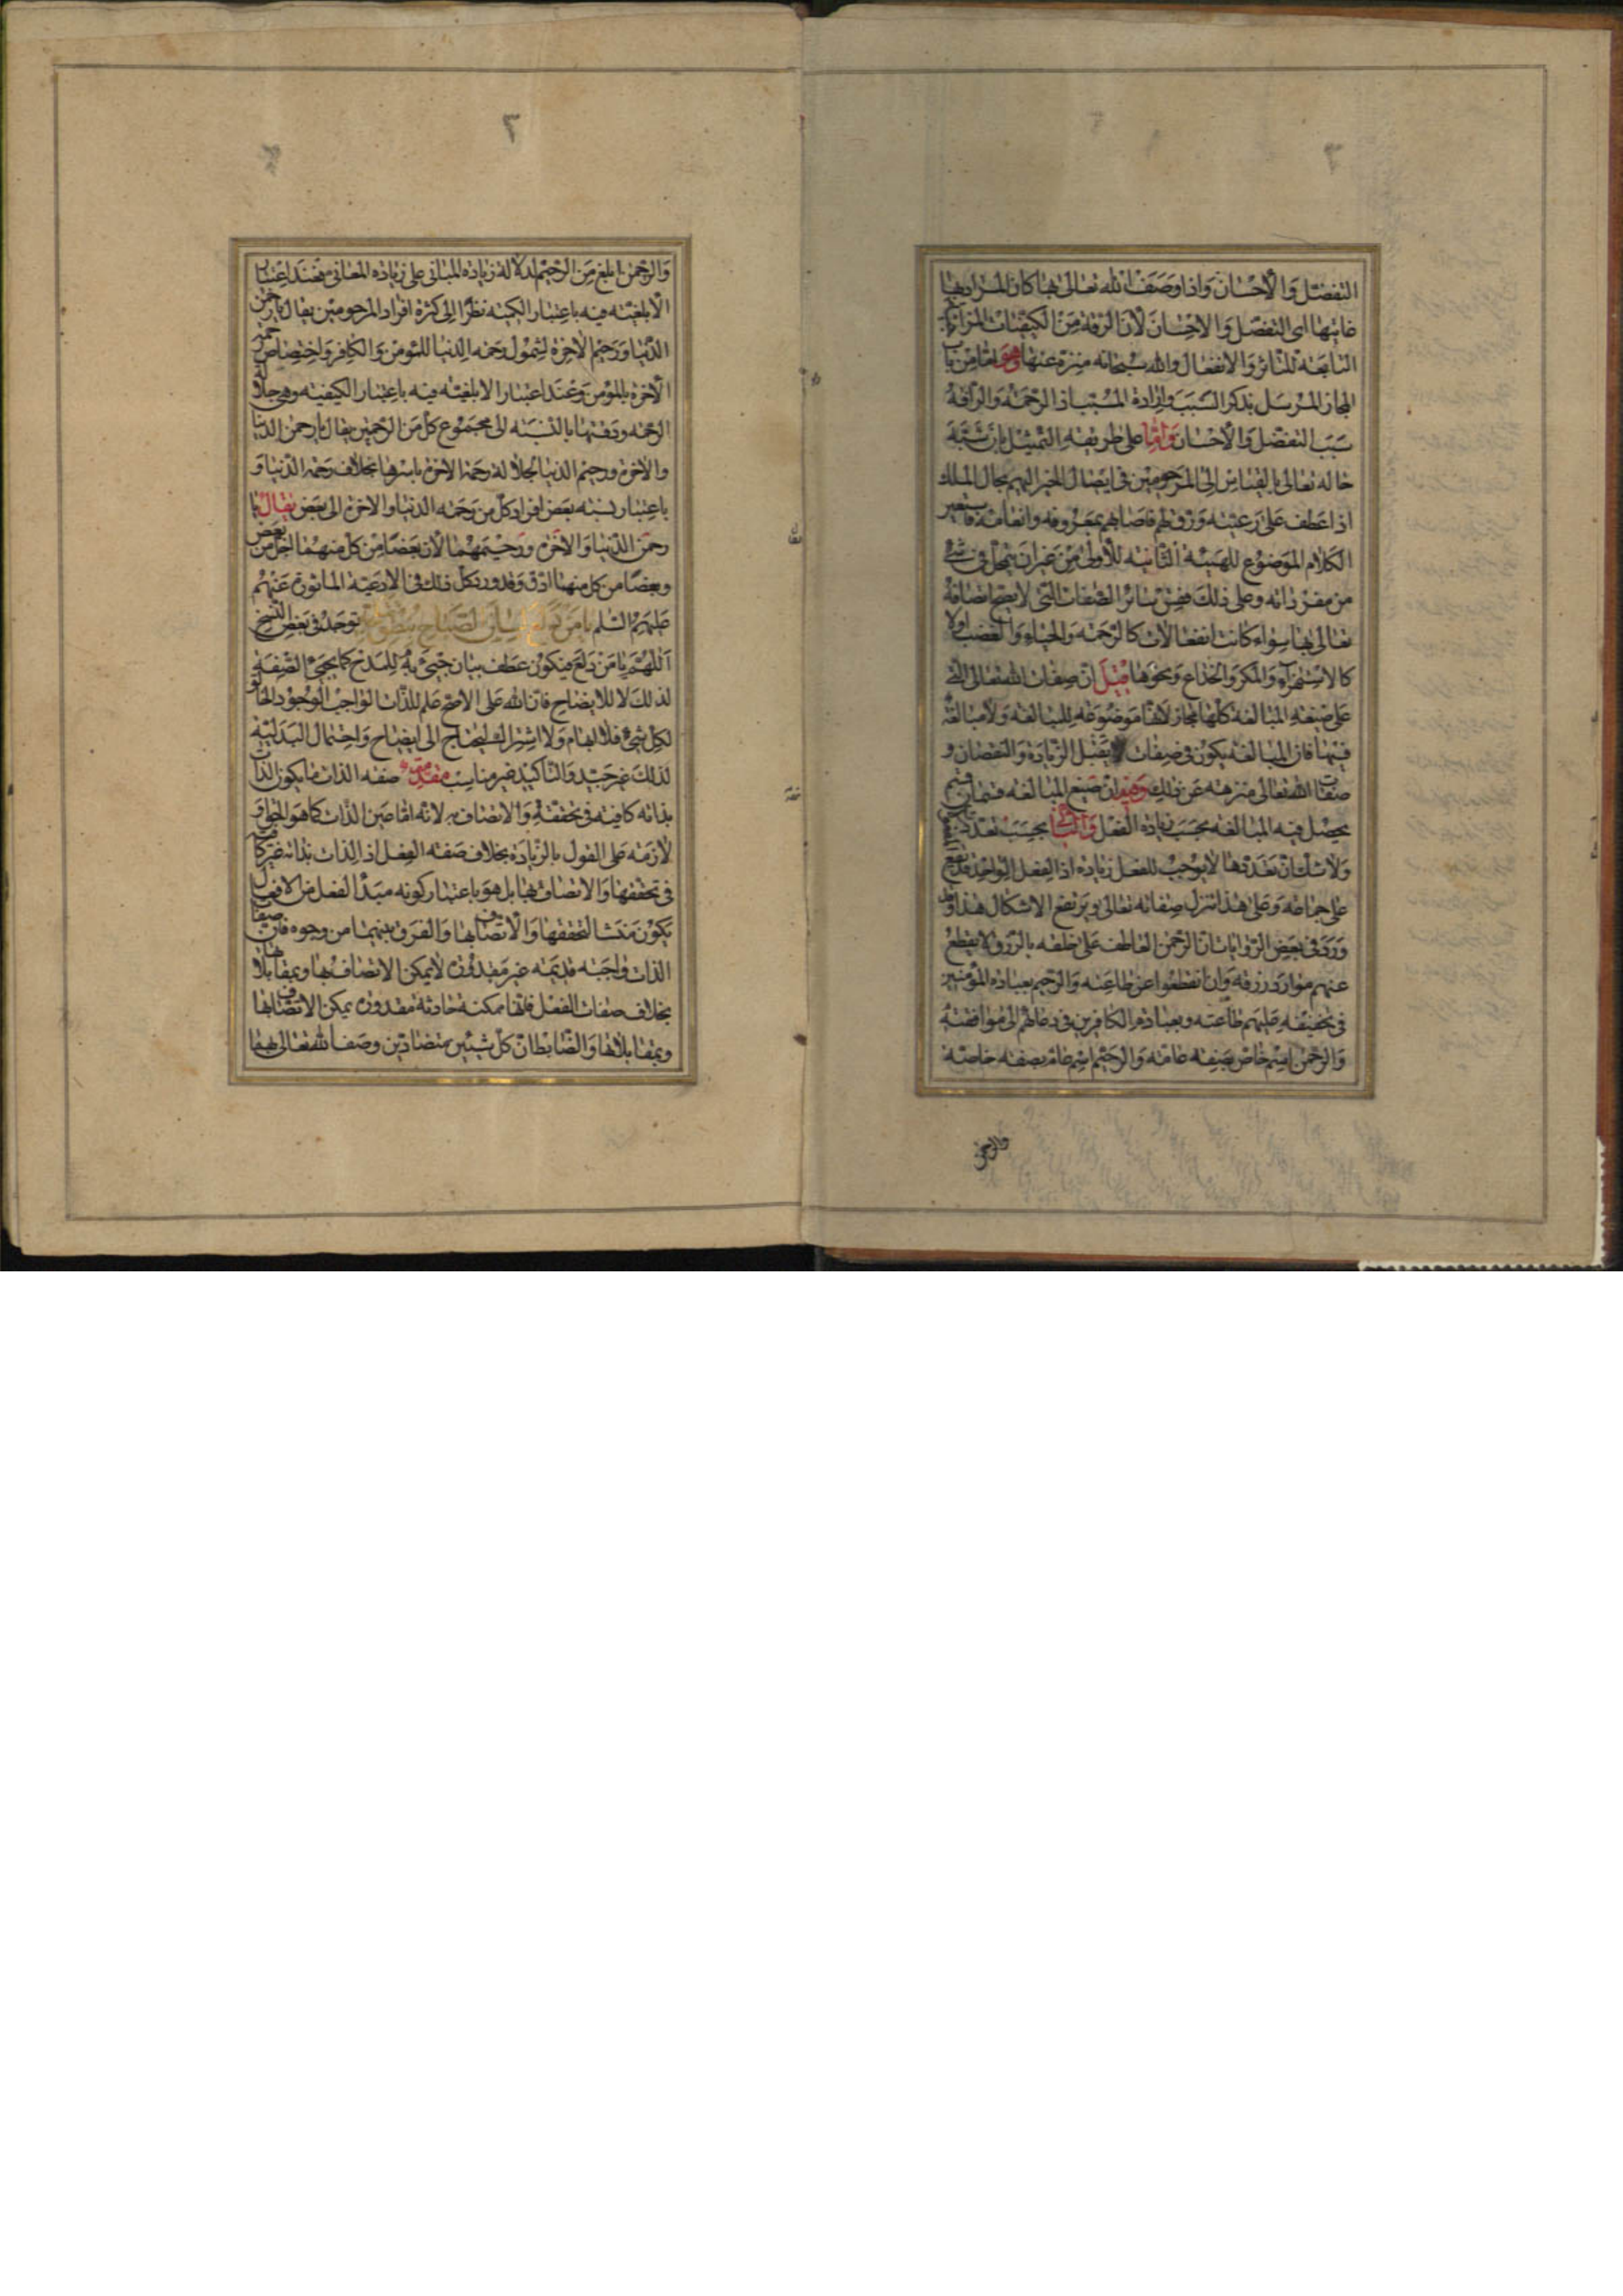 التفضّل والاحسان واذا وصف الله تعالى بها كان المراد بها
غايتها اى التفضّل والاحسان لان الرقة من الكيفيات المزاجية
التابعة للتاثر والانفعال والله سبحانه منزه عنها وهو اما من باب
المجاز المرسل بذكر السبب وارادة المسبب اذ الرحمة والرأفة
سبب التفضّل والاحسان واما على طريقة التمثيل بان شبّه
حاله تعالى بالقياس الى المرحومين فى ايصال الخير اليهم بحال الملك
اذا عطف على رعيته ورق لهم فاصابهم بمعروفه وانعامه فاستعير
الكلام الموضوع للهيئة الثانية للاولى من غير ان يتمحل فى شئ
من مفرداته وعلى ذلك فقس سائر الصفات التى لا يصح اتصافه
تعالى بها سواء كانت انفعالات كالرحمة والحياء والغضب اولا
كالاستهزاء والمكر والخداع ونحوها قيل ان صفات الله تعالى التى
على صيغة المبالغة كلها مجاز لانها موضوعة للمبالغة ولا مبالغة
فيها فان المبالغة يكون فى صفات تقبل الزيادة والنقصان و
صفات الله تعالى منزهة عن ذلك وقيل ان صيغ المبالغة قسمان قسم
يحصل فيه المبالغة بحسب زيادة الفعل والثانى بحسب تعدد
ولا شك ان تعددها لا يوجب للفعل زيادة اذ الفعل الواحد قد يقع
على جماعة وعلى هذا تنزل صفاته تعالى ويرتفع الاشكال هذا وقد
ورد فى بعض الروايات ان الرحمن العاطف على خلقه بالرزق لا يقطع
عنهم مواد رزقه وان انقطعوا عن طاعته والرحيم بعباده المؤمنين
فى تخفيفه عليهم طاعته وبعباده الكافرين فى دعائهم الى موافقته
والرحمن اسم خاص بصفة عامة والرحيم اسم عام بصفة خاصة
والرحمن
٢
والرحمن ابلغ من الرحيم لدلالة زيادة المبانى على زيادة المعانى فعند اعتبار
الابلغية فيه باعتبار الكمية نظرا الى كثرة افراد المرحومين يقال يا رحمن
الدنيا ورحيم الاخرة لشمول رحمة الدنيا للمؤمن والكافر واختصاص رحمة
الاخرة بالمؤمن وعند اعتبار الابلغية فيه باعتبار الكيفية وهى جلالة
الرحمة ودقتها بالنسبة الى مجموع كل من الرحمتين يقال يا رحمن الدنيا
والاخرة ورحيم الدنيا لجلالة رحمة الاخرة باسرها بخلاف رحمة الدنيا و
باعتبار نسبة بعض افراد كل من رحمة الدنيا والاخرة الى بعض يقال يا
رحمن الدنيا والاخرة ورحيمهما لان بعضا من كل منهما اجل من بعض
وبعضا من كل منهما ادق وقد ورد كل ذلك فى الادعية الماثورة عنهم
عليهم السلم يا من دلع لسان الصباح بنطق توجد فى بعض النسخ
اللهم يا من دلع فيكون عطف بيان جيئ به للمدح كما يجيئ الصفة
لذلك لا للايضاح فان الله على الاصح علم للذات الواجب الوجود الخالق
لكل شئ فلا ابهام ولا اشتراك ليحتاج الى ايضاح واحتمال البدلية
لذلك غير جيد والتاكيد غير مناسب مقدمة صفة الذات ما يكون الذات
بذاته كافية فى تحققه والاتصاف به لانه اما عين الذات كما هو الحق او
لازمة على القول بالزيادة بخلاف صفة الفعل اذ الذات بذاته غير كاف
فى تحققها والاتصاف بها بل هو باعتبار كونه مبدأ لفعل من الافعال
يكون منشا لتحققها والاتصاف بها والفرق بينهما من وجوه فان صفات
الذات واجبة قديمة غير مقدورة لا يمكن الاتصاف بها وبمقابلاتها
بخلاف صفات الفعل فانها ممكنة حادثة مقدورة يمكن الاتصاف بها
وبمقابلاتها والضابط ان كل شيئين متضادين وصف الله تعالى بهما